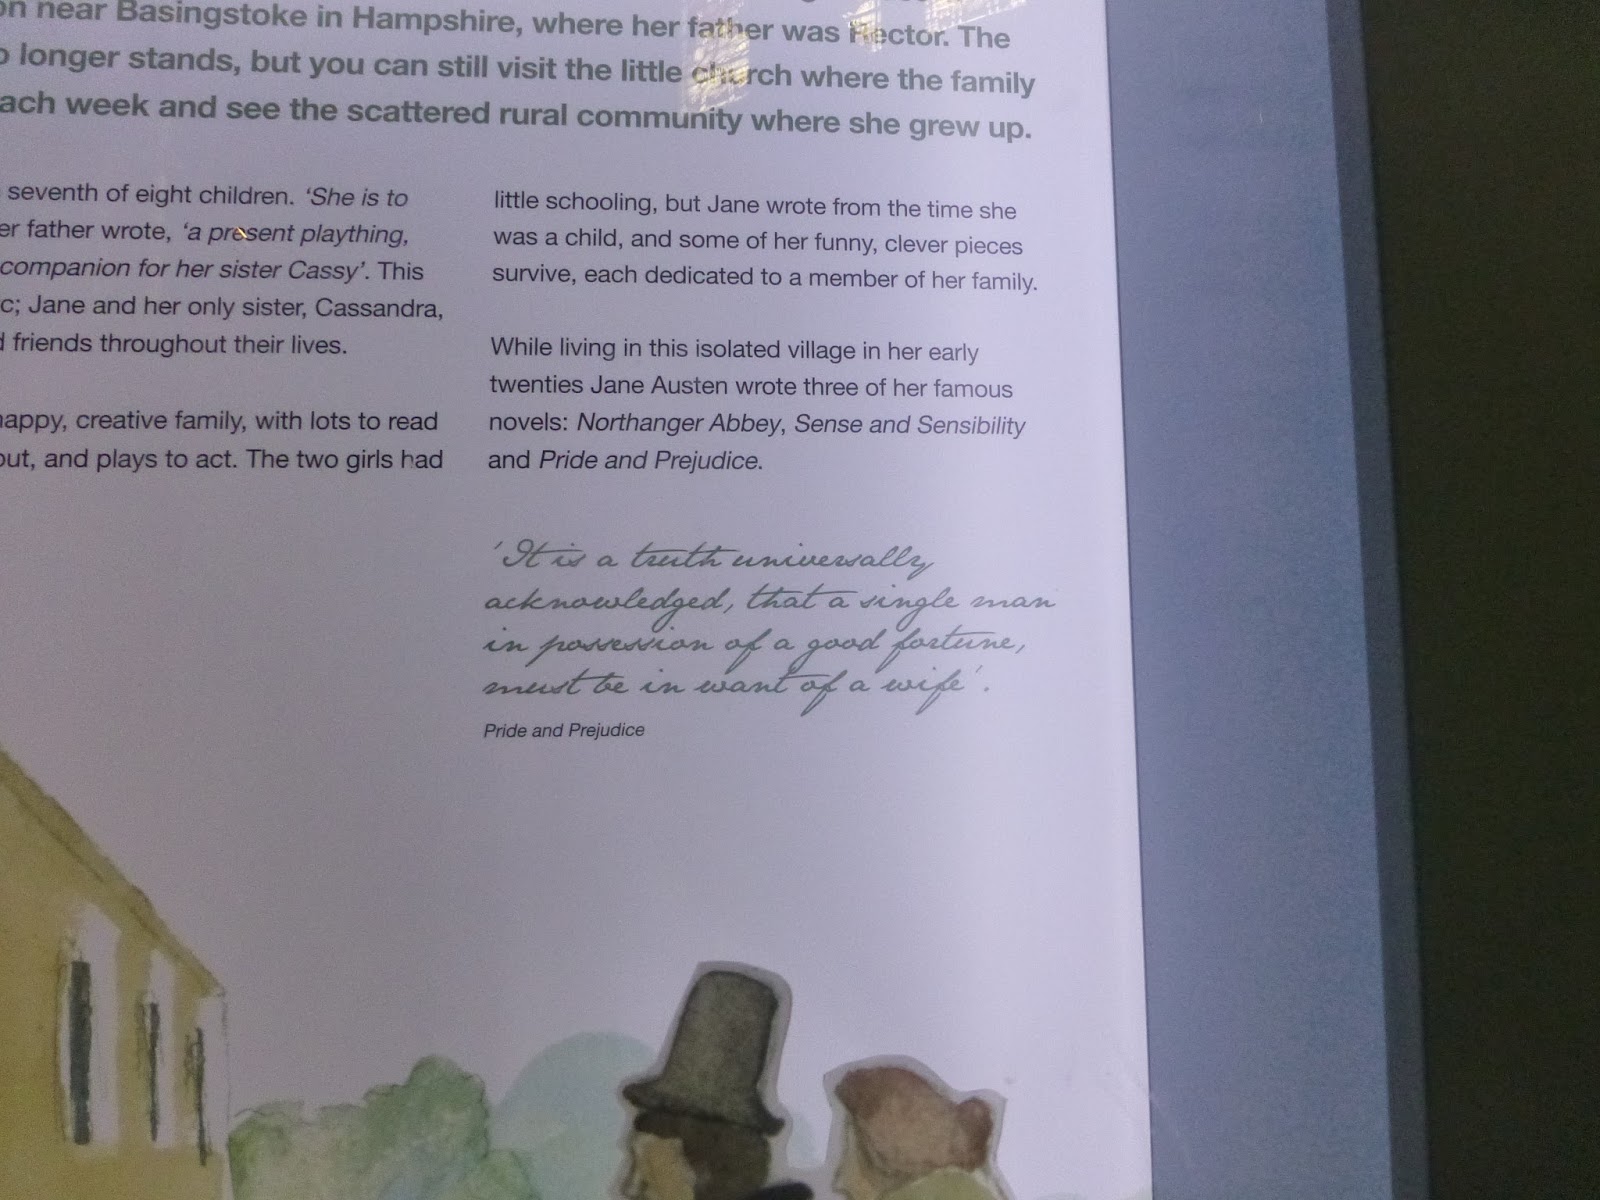 near Basingstoke in Hampshire, where her father was Rector. The
longer stands, but you can still visit the little church where the family
ach week and see the scattered rural community where she grew up.
seventh of eight children. ‘She is to
er father wrote, ‘a present plaything,
companion for her sister Cassy’. This
c; Jane and her only sister, Cassandra,
friends throughout their lives.
happy, creative family, with lots to read
out, and plays to act. The two girls had
little schooling, but Jane wrote from the time she
was a child, and some of her funny, clever pieces
survive, each dedicated to a member of her family.
While living in this isolated village in her early
twenties Jane Austen wrote three of her famous
novels: Northanger Abbey, Sense and Sensibility
and Pride and Prejudice.
‘It is a truth universally
acknowledged, that a single man
in possession of a good fortune,
must be in want of a wife’.
Pride and Prejudice